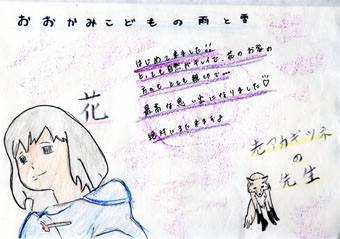 おおかみこどもの雨と雪
はじめて来ました!!
とっても自然がキレイで、花のお家の
方も とても親切で…
最高な思い出になりました♡
絶対いまた来ますよ
花
元アカギツネ
の
先生